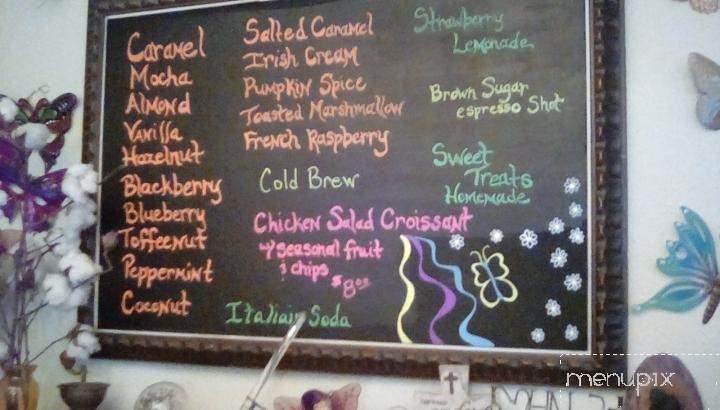 Caramel
Mocha
Almond
Vanilla
Hazelnut
Blackberry
Blueberry
Toffeenut
Peppermint
Coconut
Salted Caramel
Irish Cream
Pumpkin Spice
Toasted Marshmallow
French Raspberry
Cold Brew
Chicken Salad Croissant
w/ seasonal fruit
& chips
$8.00
Italian Soda
Strawberry
Lemonade
Brown Sugar
espresso Shot
Sweet
Treats
Homemade
menupix